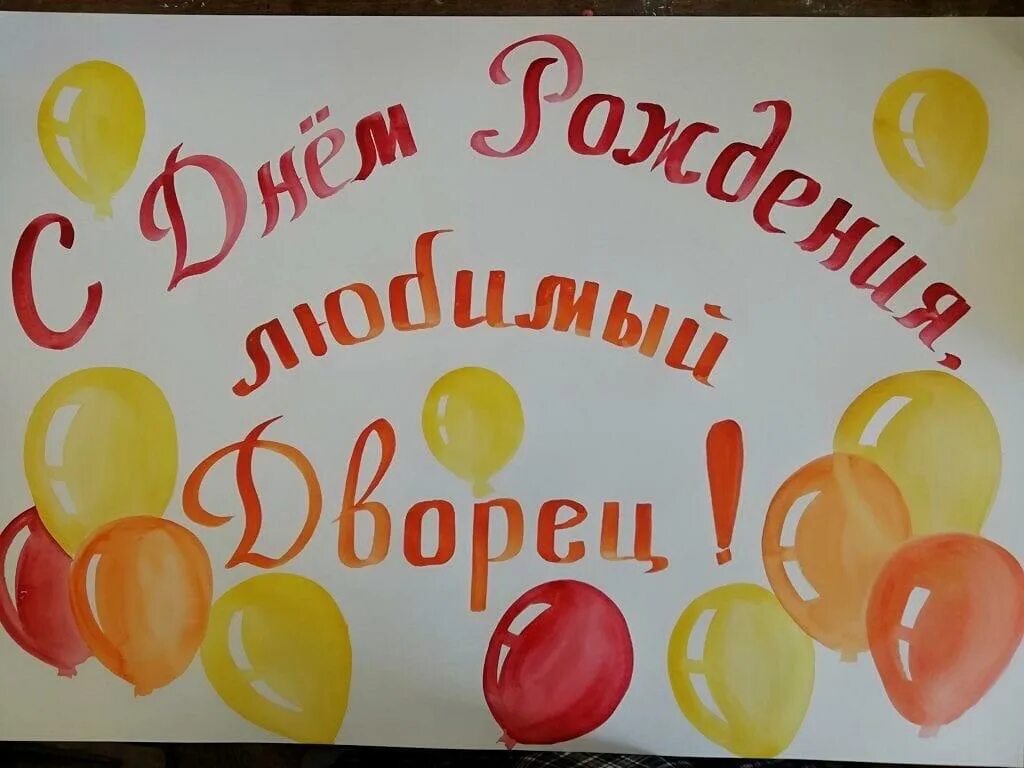 С Днём Рождения,
любимый
Дворец!